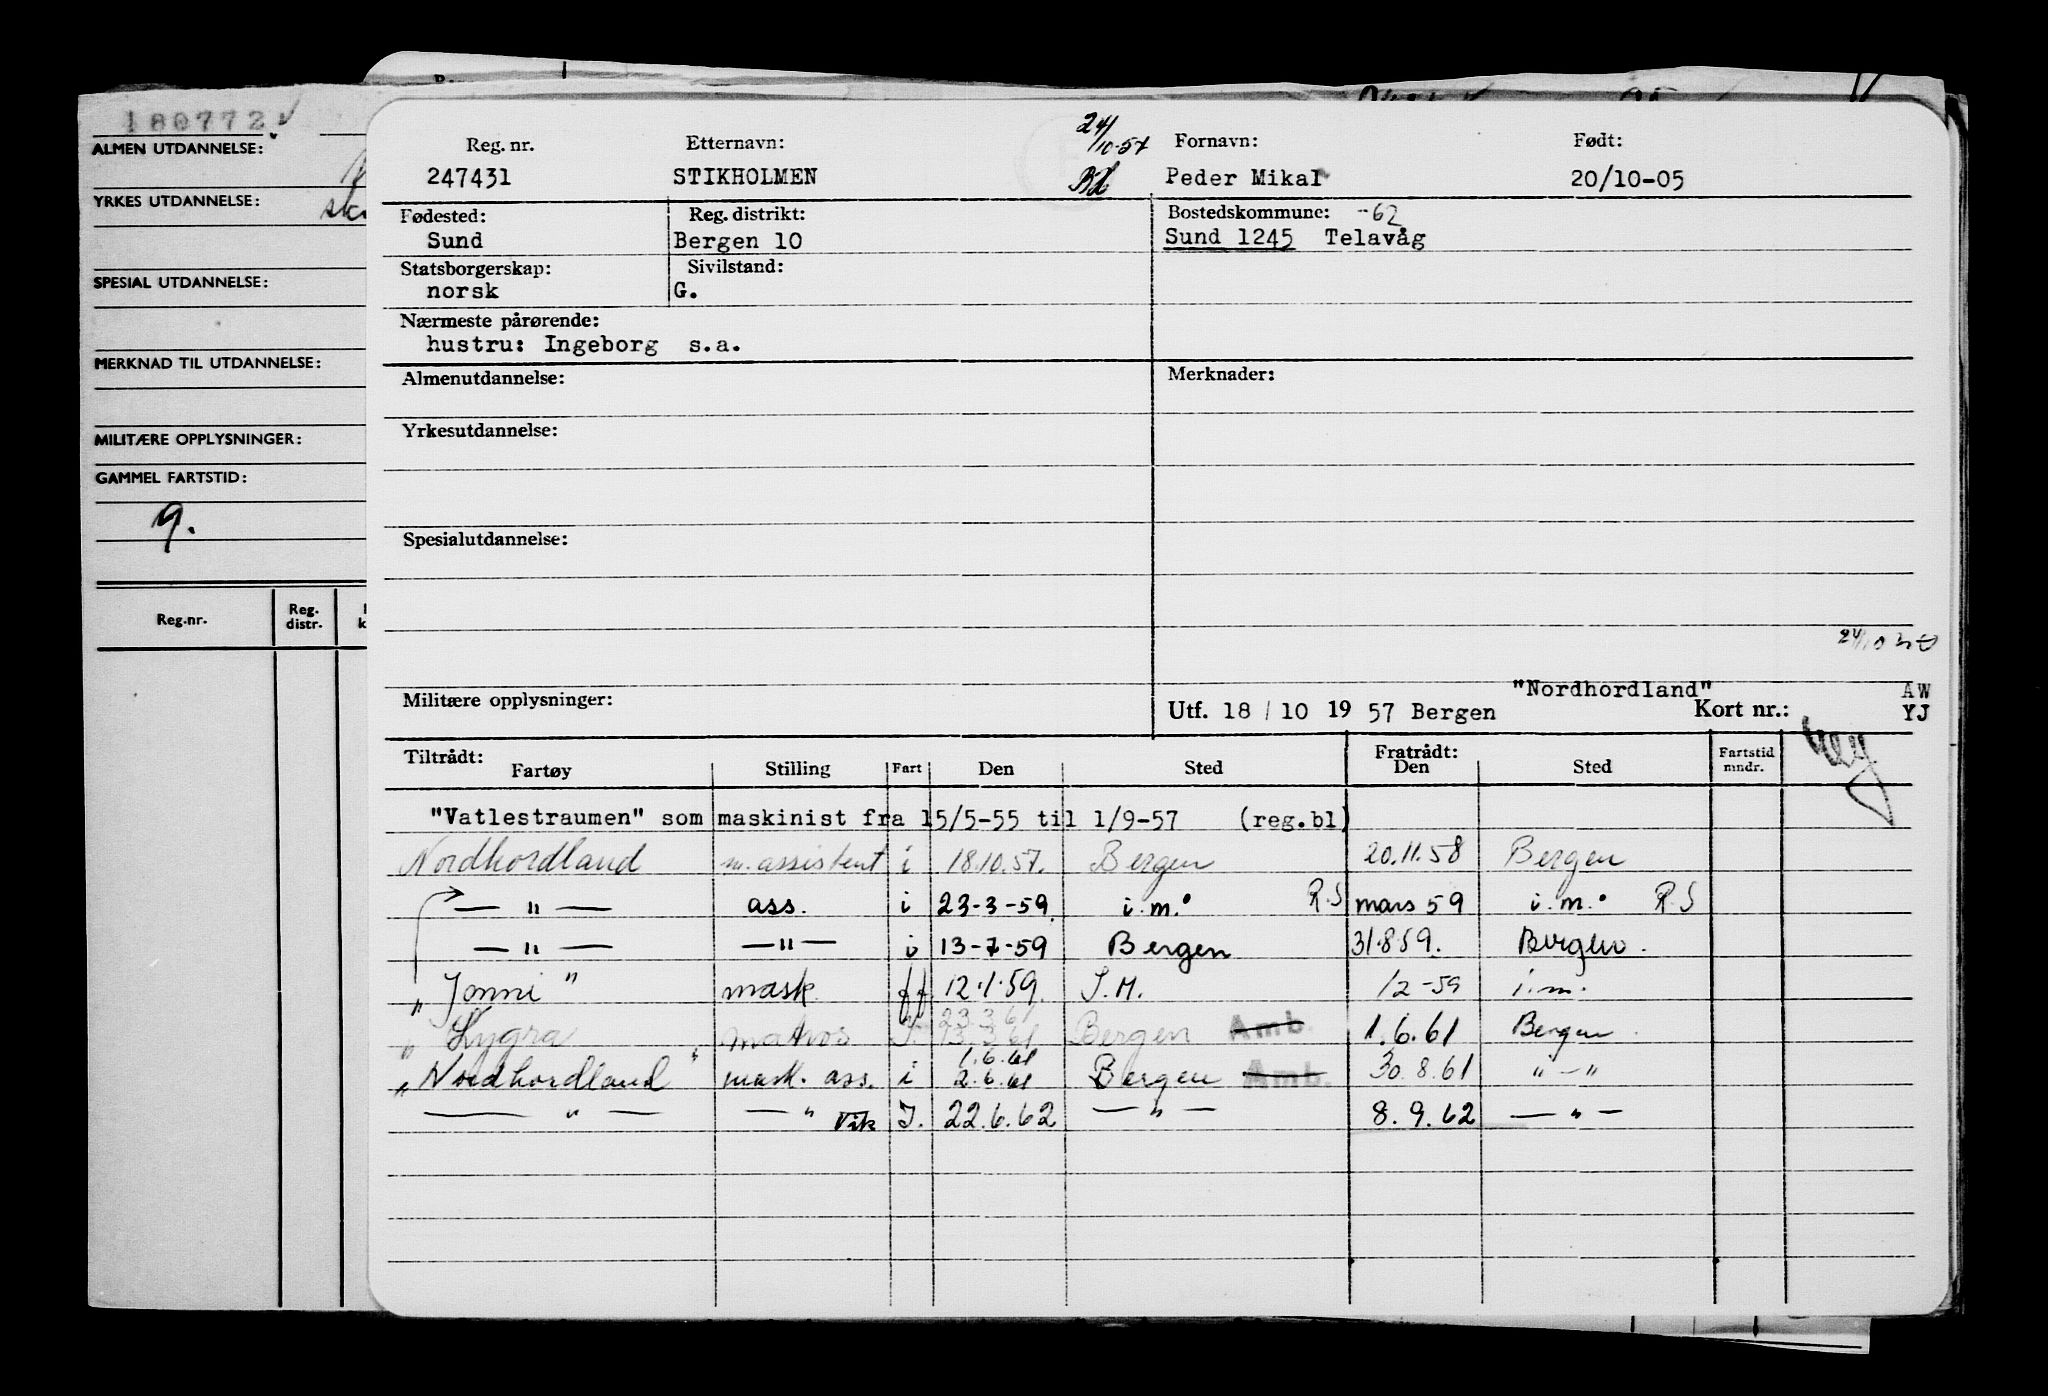 180772
ALMEN UTDANNELSE:
YRKES UTDANNELSE:
SPESIAL UTDANNELSE:
MERKNAD TIL UTDANNELSE:
MILITÆRE OPPLYSNINGER:
GAMMEL FARTSTID:
9.
Reg.nr. Reg. distr.
Reg. nr. Etternavn: 24/10-57 Fornavn: Født:
247431 STIKHOLMEN Peder Mikal 20/10-05
Fødested: Reg. distrikt: Bostedskommune: -62
Sund Bergen 10 Sund 1245 Telavåg
Statsborgerskap: Sivilstand:
norsk G.
Nærmeste pårørende:
hustru: Ingeborg s.a.
Almenutdannelse: Merknader:
Yrkesutdannelse:
Spesialutdannelse:
"Nordhordland" AW
Militære opplysninger: Utf. 18 / 10 19 57 Bergen Kort nr.: YJ
Tiltrådt: Fratrådt: Fartstid mndr.
Fartøy Stilling Fart Den Sted Den Sted
"Vatlestraumen" som maskinist fra 15/5-55 til 1/9-57 (reg.bl)
Nordhordland m.assistent i 18.10.57. Bergen 20.11.58 Bergen
— " — ass. i 23-3-59 i.m. R.S mars 59 i.m. R.S
— " — — " — i 13-7-59 Bergen 31.8.59. Bergen.
" Jonni " mask. ff. 12.1.59. I.M. 1/2-59 i.m.
23.3.61
" Lygra " matros I. 13.3.61 Bergen Amb. 1.6.61 Bergen.
1.6.61
" Nordhordland " mask. ass. i 2.6.61 Bergen Amb. 30.8.61 " — "
— " — — " Vik I. 22.6.62 — " — 8.9.62 — " —